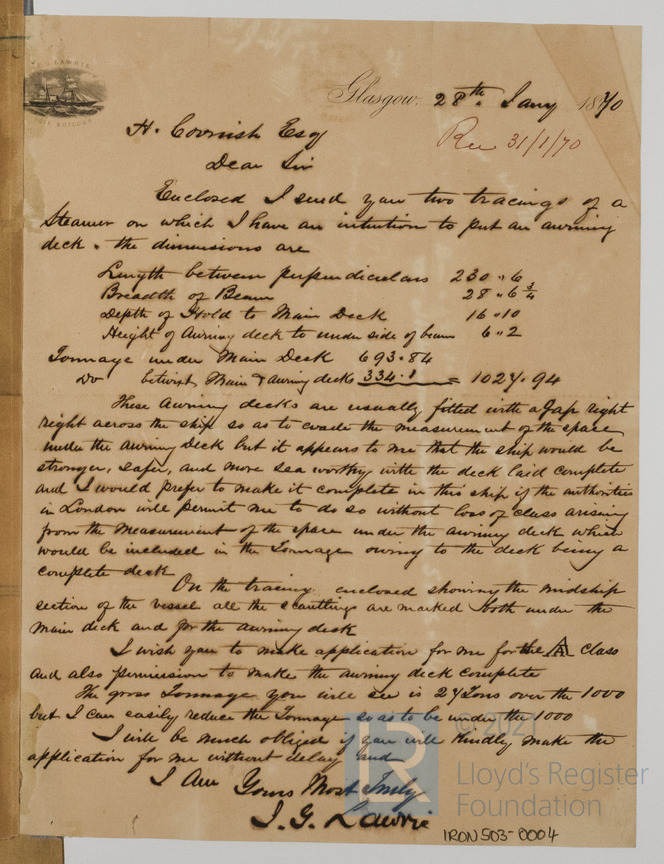 J. G. LAWRIE
SHIP BUILDER
Glasgow, 28th. Jany 1870
Rec 31/1/70
H. Cornish Esq
Dear Sir
Enclosed I send you two tracings of a
Steamer on which I have an intention to put an awning
deck. the dimensions are
Length between perpendiculars 230 " 6
Breadth of Beam 28 " 6 3/4
Depth of Hold to Main Deck 16 " 10
Height of Awning deck to under side of beam 6 " 2
Tonnage under Main Deck 693.84
Do betwixt Main & awning decks 334.1 = 1027.94
These Awning decks are usually fitted with a Gap right
right across the ship so as to evade the measurement of the space
under the Awning Deck but it appears to me that the ship would be
stronger, safer, and more sea worthy with the deck laid complete
and I would prefer to make it complete in this ship if the authorities
in London will permit me to do so without loss of class arising
from the measurement of the space under the awning deck which
would be included in the Tonnage owing to the deck being a
complete deck
On the tracing enclosed showing the midship
section of the vessel all the scantlings are marked both under the
main deck and for the awning deck
I wish you to make application for me for the A class
and also permission to make the awning deck complete
The gross Tonnage you will see is 27 Tons over the 1000
but I can easily reduce the Tonnage so as to be under the 1000
I will be much obliged if you will kindly make the
application for me without delay and
I Am Yours Most Truly
J. G. Lawrie
LR
Lloyd's Register
Foundation
IRON503-0004